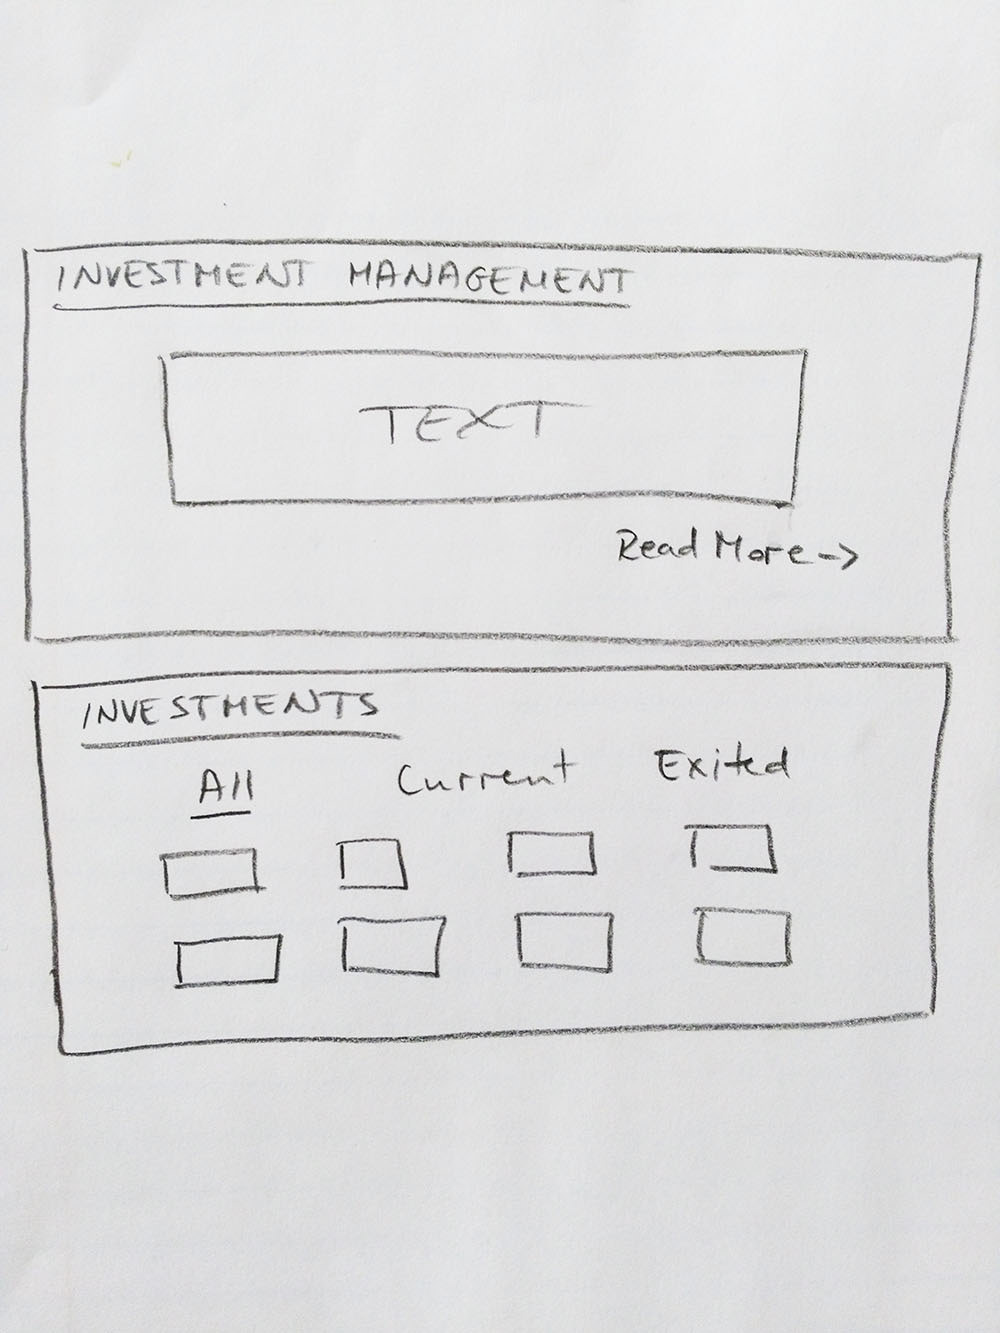 INVESTMENT MANAGEMENT
TEXT
Read More ->
INVESTMENTS
All Current Exited